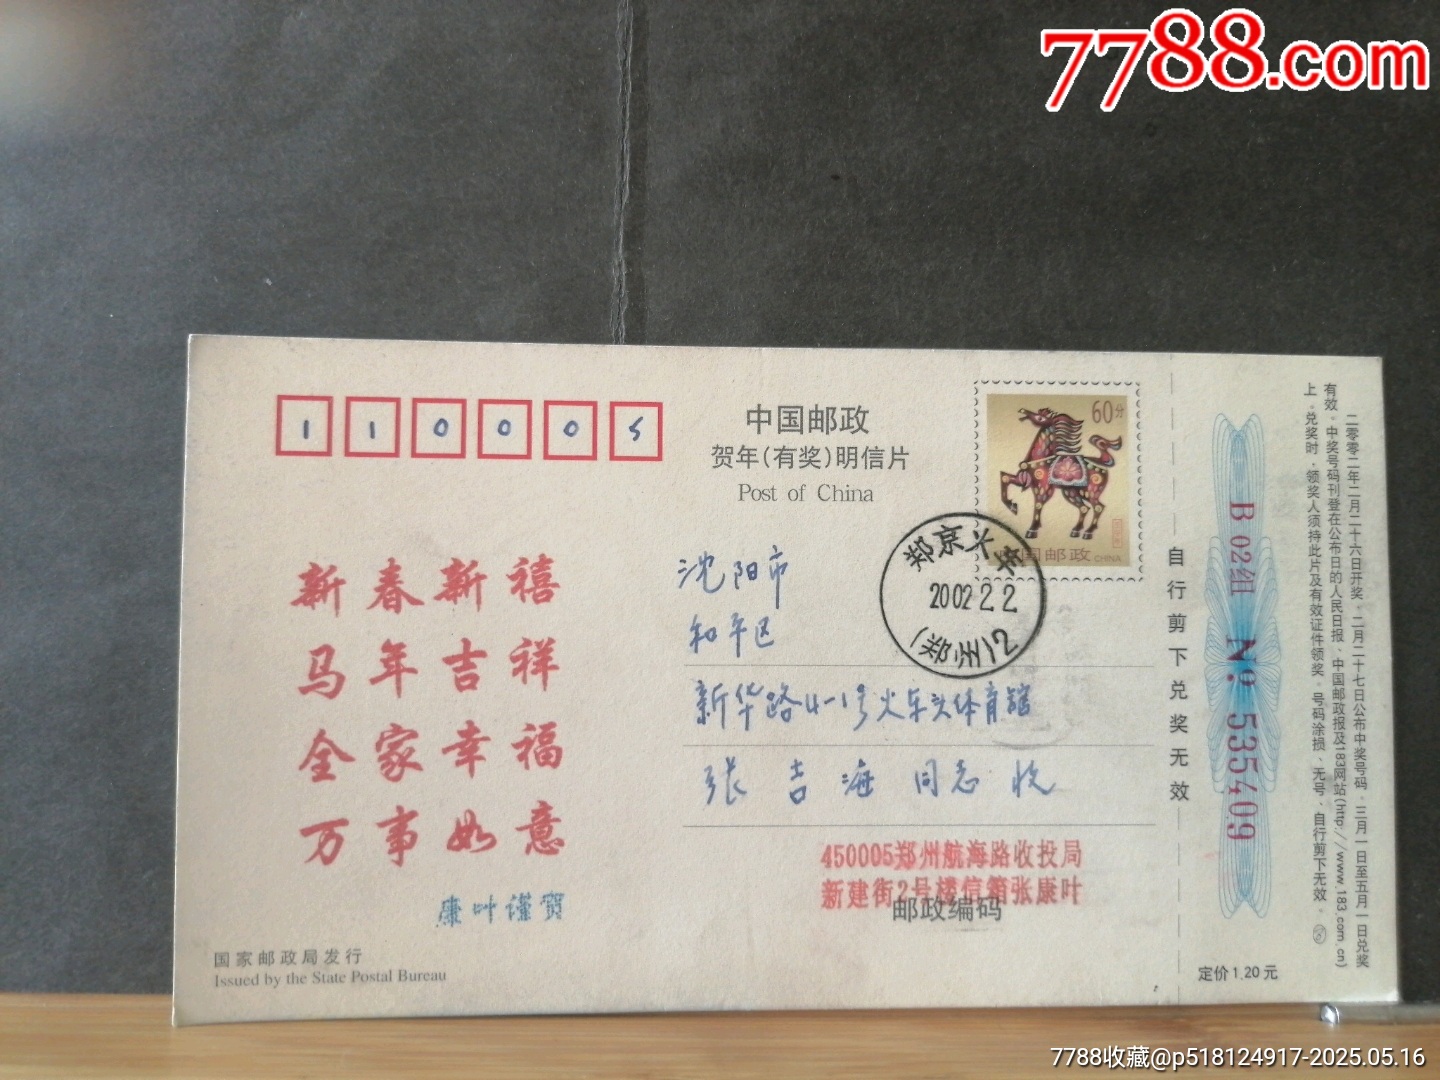 7788.com
110005
中国邮政
贺年(有奖)明信片
Post of China
60分
中国邮政 CHINA
郑京火车
2002 2 2
(郑州)2
新春新禧
马年吉祥
全家幸福
万事如意
康叶谨贺
沈阳市
和平区
新华路4-1号火车头体育馆
张吉海 同志 收
450005郑州航海路收投局
新建街2号楼信箱张康叶
邮政编码
国家邮政局发行
Issued by the State Postal Bureau
自行剪下兑奖无效
B 02组 Nº 535409
二零零二年二月二十六日开奖，二月二十七日公布中奖号码，三月一日至五月一日兑奖
有效。中奖号码刊登在公布日的人民日报、中国邮政报及183网站(http://www.183.com.cn)
上。兑奖时，领奖人须持此片及有效证件领奖。号码涂损、无号、自行剪下无效。
定价1.20元
7788收藏@p518124917-2025.05.16